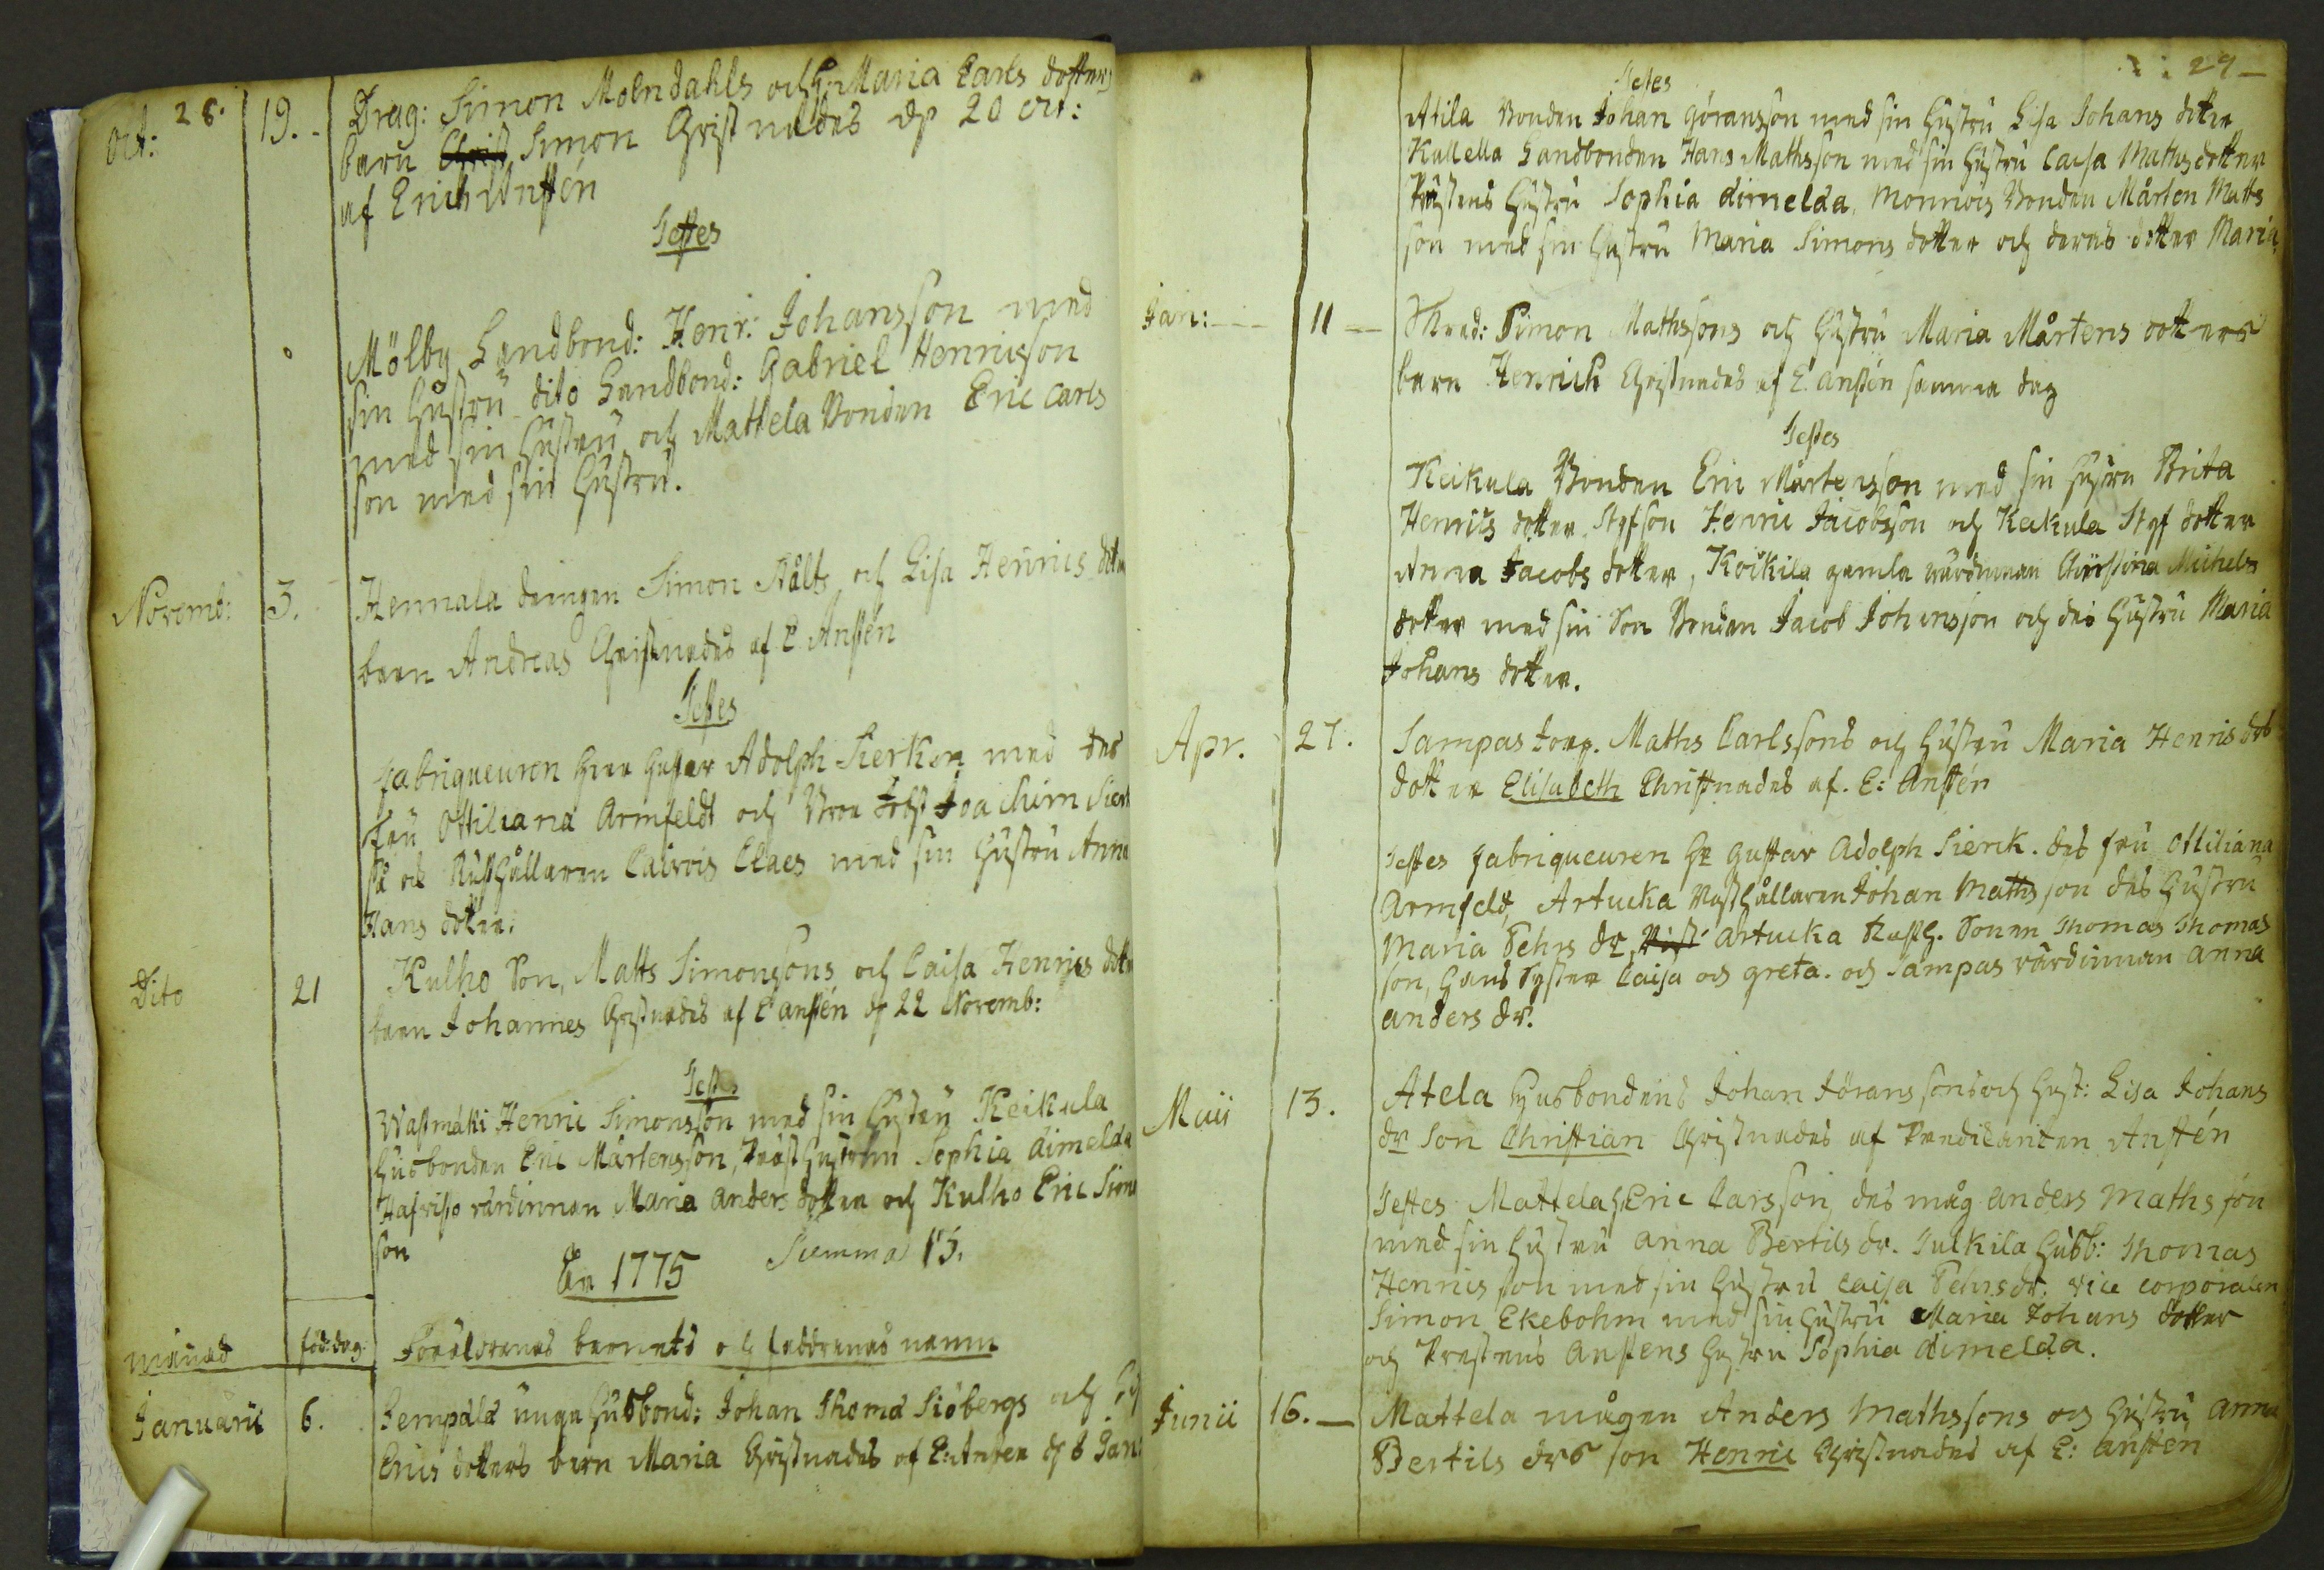 28.
Oct: 19. Drag: Simon Molndahls och H. Maria Carls dotters
barn Simon Christnades d. 20 Oct:
af Erich Anstén
Testes
Mölby Landbond: Henr: Johansson med
sin Hustru dito Landbond: Gabriel Henricsson
med sin Hustru och Mattela Bonden Eric Carls
son med sin Hustru.
Novemb: 3. Hennala drengen Simon Stålts och Lisa Henrics dott
barn Andreas Christnades af E Anstén
Testes
Fabriqueuren Herr Gustav Adolph Sierken med des
Fru Ottiliana Armfeldt och Joachim Sier
och Rusthållaren Claes med sin Hustru Anna
Hans dotter.
Dito 21 Kulho Son, Matts Simonsons och Caisa Henrics dott
barn Johannes Christnades af E Anstén d. 22 Novemb:
Test.
Wastmäki Henric Simonsson med sin Hustru Keikala
Husbonden Eric Mårtensson, Präst Hustrun Sophia Aimelda
värdinnan Maria Anders dotter och Kulho Eric Simon
son
Summa 15.
År 1775
månad föd: dag. Föräldrarnes barnets och faddrarnes namn
Januarii 6. Sempälä unga Husbond: Johan Thoma Siöbergs och H
Erics dotters barn Maria Christnades af E: Ansten d. 8 Jan
29
Testes
Atila Bonden Johan Göransson med sin Hustru Lisa Johans dotter
Kullella Landbonden Hans Mathsson med sin Hustru Caisa Maths dotter
Prestens Hustru Sophia Aimelda, Monnois Bonden Mårten Matts
son med sin Hustru Maria Simons dotter och deras dotter Maria
Jan: 11 Simon Mathssons och Hustru Maria Mårtens dotters
barn Henrich Christnades af E. Anstén samma dag
Testes
Keikala Bonden Eric Mårtensson med sin Hustru Brita
Henrics dotter, Styfson Henric Jacobsson och Keikala Styf dotter
Anna Jacobs dotter, Koikila gamla wärdinnan Christina Michels
dotter med sin Son Bonden Jacob Johansson och des Hustru Maria
Johans dotter.
Apr. 27. Sampas torp. Maths Carlssons och Hustru Maria Henris drs
dotter Elisabeth Christnades af. E: Anstén
Testes Fabriqueuren Hr Gustav Adolph Sierck. des fru Ottiliana
Armfeld, Artucka Rusthållaren Johan Mathsson des Hustru
Maria Pehrs dr, Artucka Rusth. Sonen Thomas Thomas
son, Hans Syster Caisa och Greta. och Sampas värdinnan Anna
Anders dr.
Maii 13. Atela Husbondens Johan Jöranssons och Hust: Lisa Johans
dr Son Christian Christnades af Predicanten Anstén
Testes Mattelas Eric Carsson, des måg Anders Mathsson
med sin Hustru Anna Bertils dr. Jutkila Husb: Thomas
Henricsson med sin Hustru Caisa Pehrs dr. vice corporalen
Simon Ekebohm med sin Hustru Maria Johans dotter
och Prestens Anstens Hustru Sophia Aimelda.
Junii 16. Mattela mågen Anders Mathssons och Hustru Anna
Bertils drs son Henric Christnades af E: Anstén